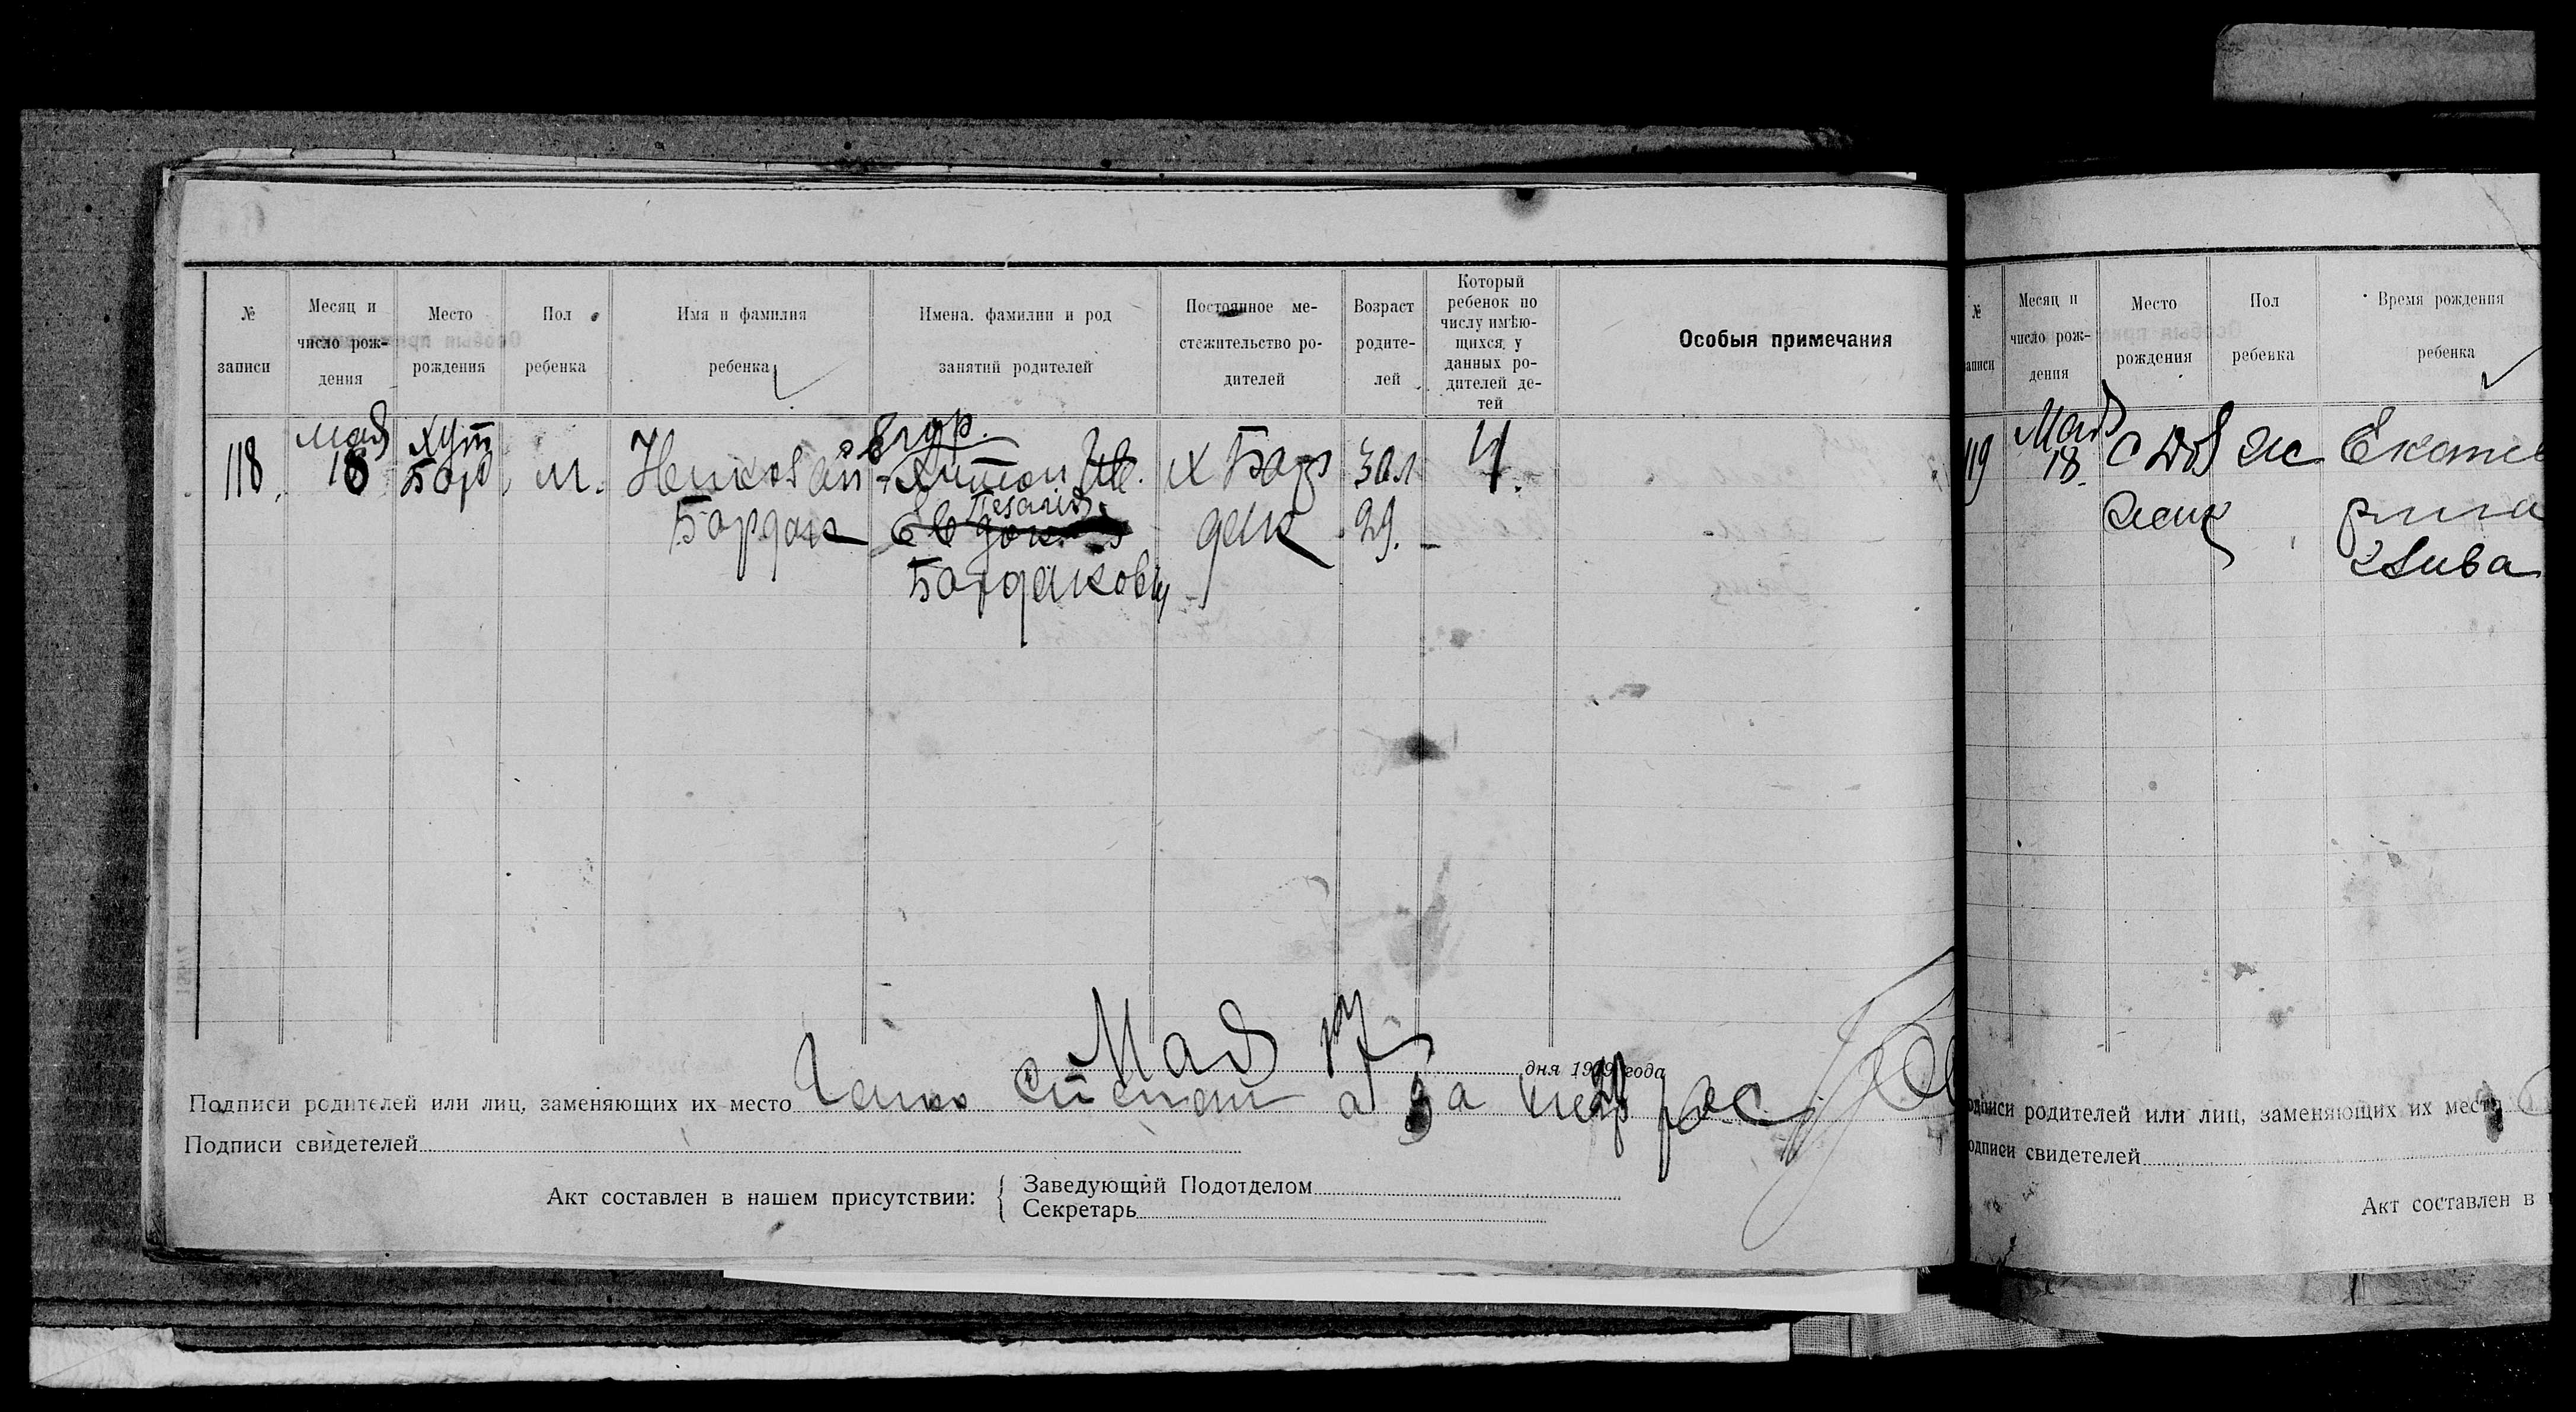 № записи
Месяц и число рождения
Место рождения
Пол ребенка
Имя и фамилия ребенка
Имена, фамилии и род занятий родителей
Постоянное местожительство родителей
Возраст родителей
Который ребенок по числу имѣющихся у данных родителей детей
Особыя примечания
118
мая
18
хут
Бар
м.
Николай
Бардак
Егор.
Антон
Евдокия
Бардаковы
х Бар
дак
30 л
29.
4.
Мая
дня 1919 года
Подписи родителей или лиц, заменяющих их место
Степан а за
Подписи свидетелей
Акт составлен в нашем присутствии:
Заведующий Подотделом
Секретарь
№ записи
Месяц и число рождения
Место рождения
Пол ребенка
Время рождения ребенка
119
Мая
18.
Екате
рина
одписи родителей или лиц, заменяющих их место
одписи свидетелей
Акт составлен в